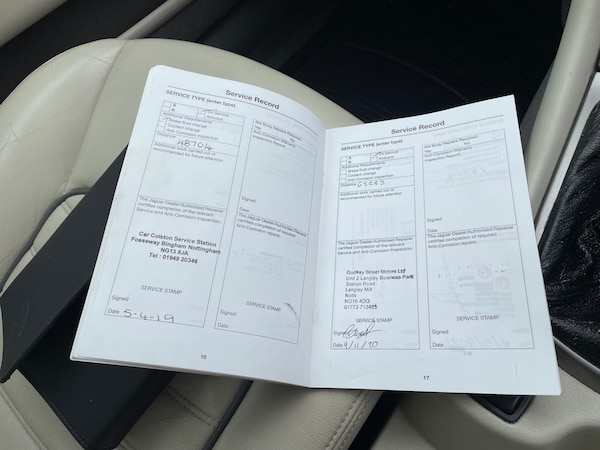 Service Record
SERVICE TYPE (enter type)
A
B
Oil Service
Additional Requirements
Brake fluid change
Coolant change
Anti-Corrosion Inspection
Distance
48704
Additional work carried out or
recommended for future attention
The Jaguar Dealer/Authorised Repairer
certifies completion of the relevant
Service and Anti-Corrosion Inspection
Car Colston Service Station
Fosseway Bingham Nottingham
NG13 8JA
Tel : 01949 20346
SERVICE STAMP
Signed
Date 5-4-19
Are Body Repairs Required?
Yes No
Anti-Corrosion
Inspection Repairs.
Signed
Date
The Jaguar Dealer/Authorised Repairer
certifies completion of required
Anti-Corrosion repairs.
SERVICE STAMP
Signed
Date
16
Service Record
SERVICE TYPE (enter type)
A
B
Oil Service
Additional Requirements
Brake fluid change
Coolant change
Anti-Corrosion Inspection
Distance
Additional work carried out or
recommended for future attention
The Jaguar Dealer/Authorised Repairer
certifies completion of the relevant
Service and Anti-Corrosion Inspection
Codkey Street Motors Ltd
Unit 2 Langley Business Park
Station Road
Langley Mill
Notts
NG16 4DG
01773 713485
SERVICE STAMP
Signed
Date 9/11/20
Are Body Repairs Required?
Yes No
Anti-Corrosion
Inspection Repairs.
Signed
Date
The Jaguar Dealer/Authorised Repairer
certifies completion of required
Anti-Corrosion repairs.
SERVICE STAMP
Signed
Date
17